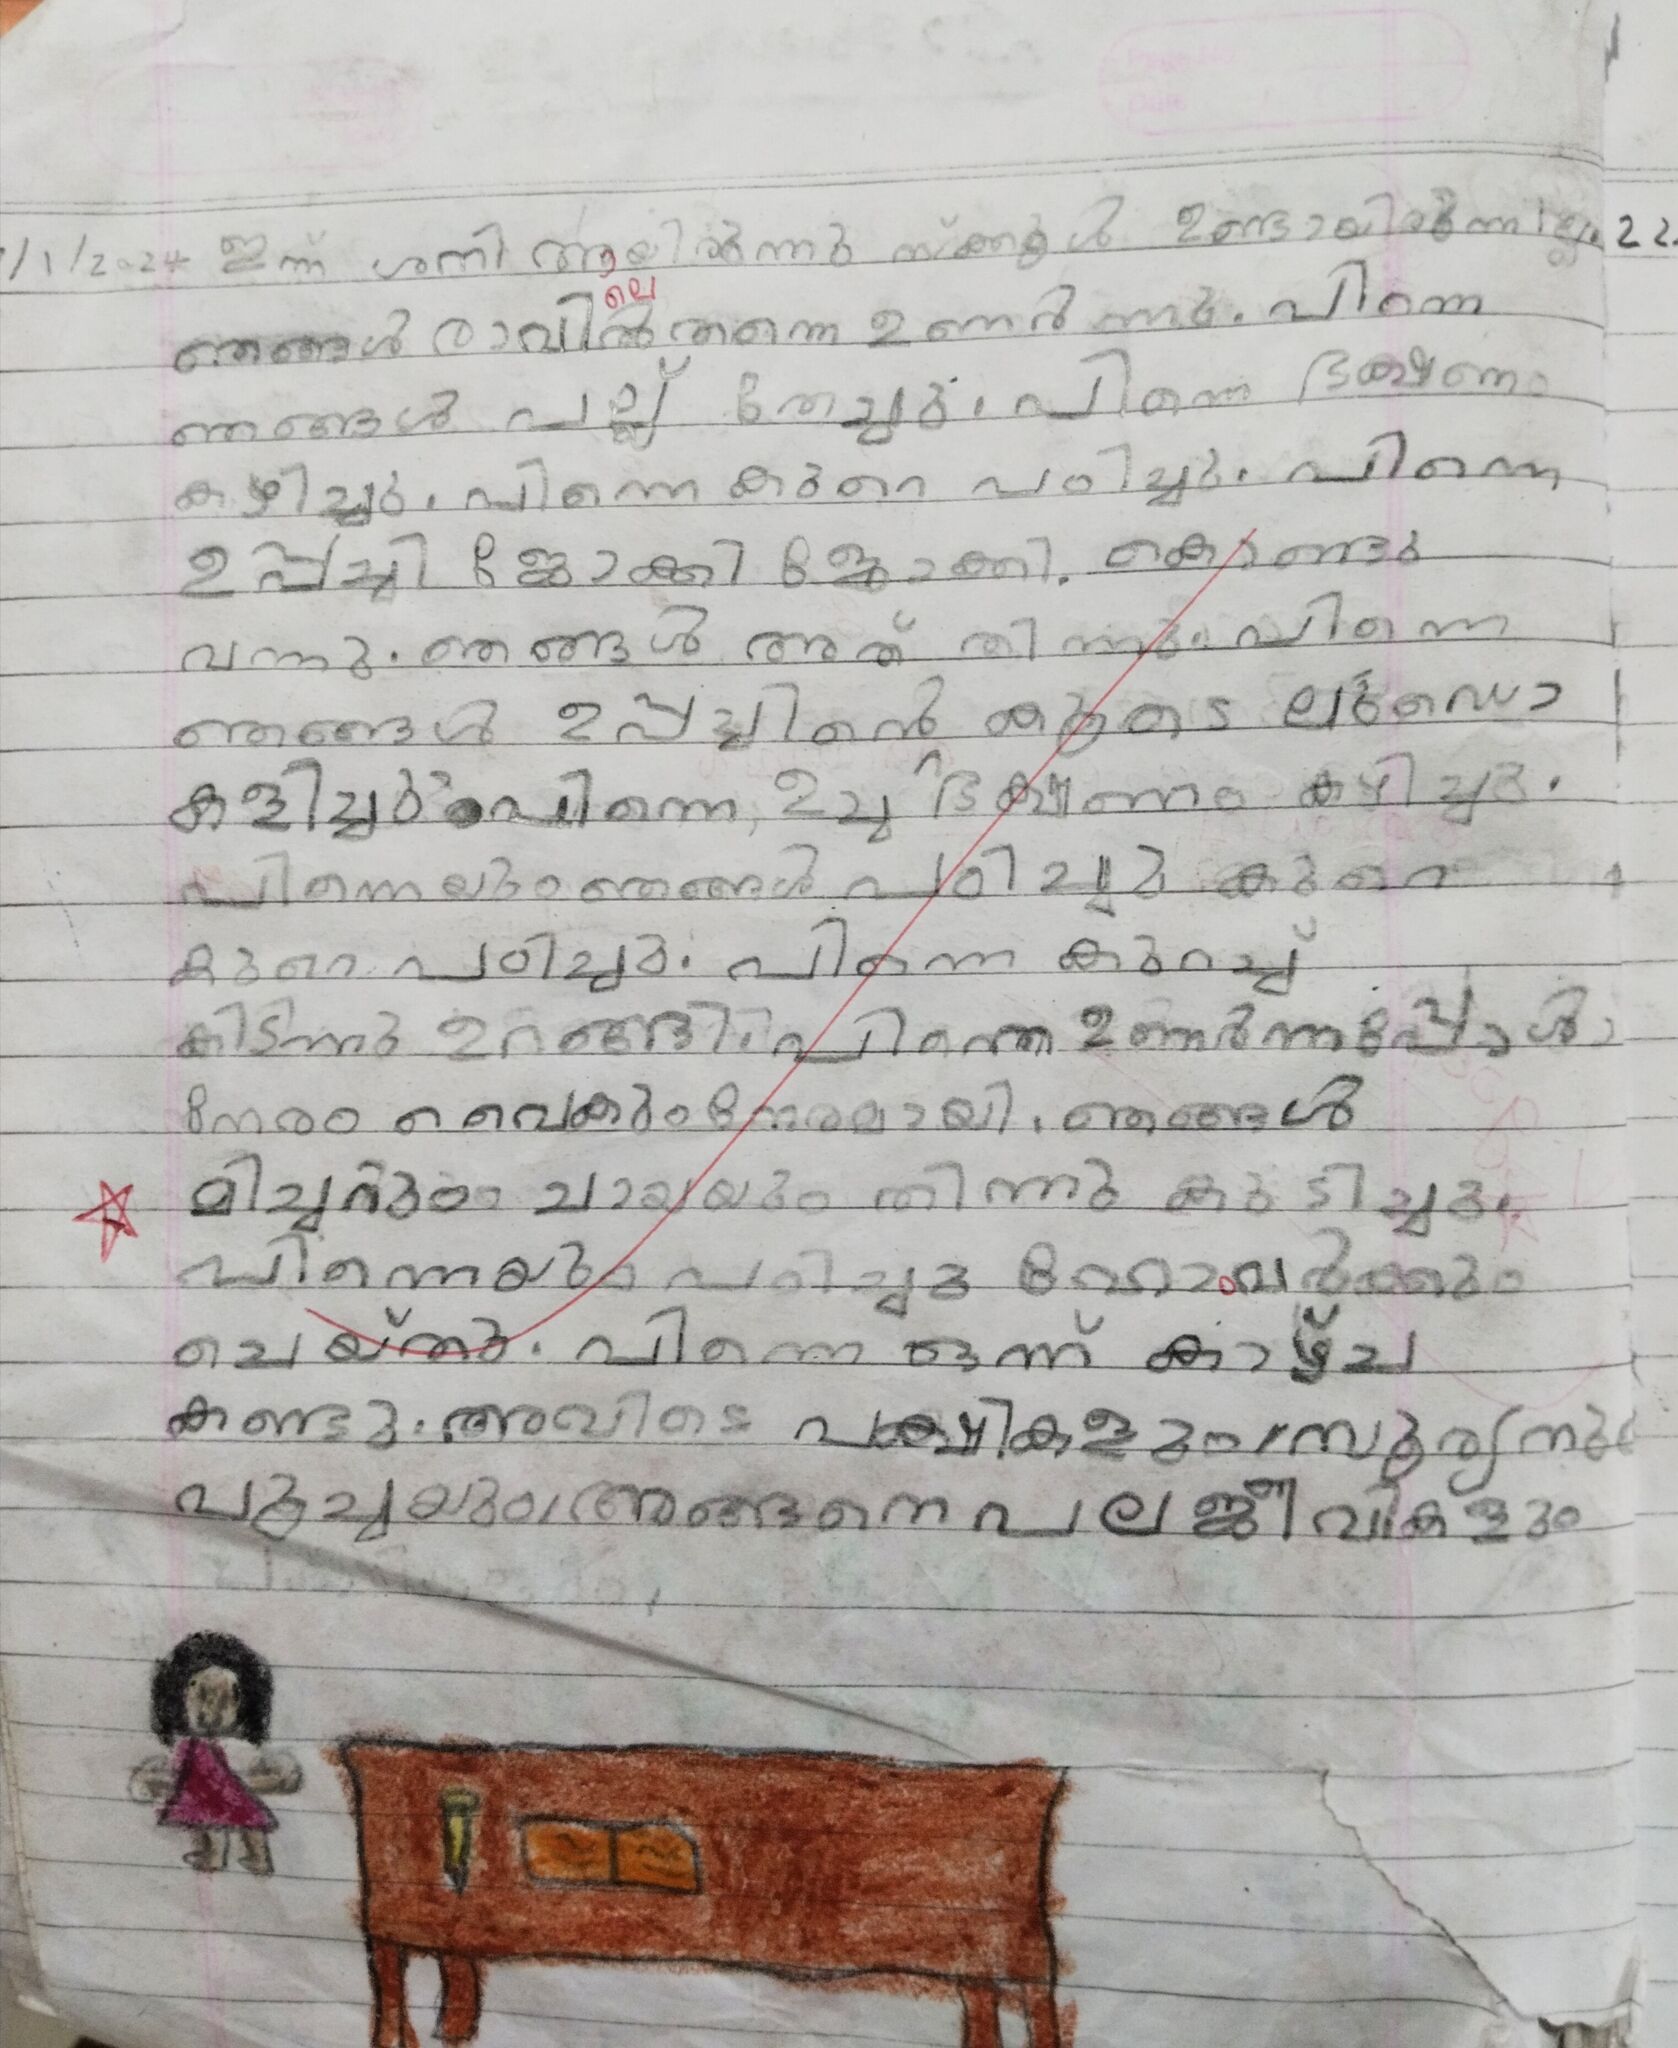 /1/2024 ഇന്ന് ശനി ആയിരുന്നു സ്കൂൾ ഉണ്ടായിരുന്നില്ല. 22
ലെ
ഞങ്ങൾ രാവിൽതന്നെ ഉണർന്നു. പിന്നെ
ഞങ്ങൾ പല്ല് തേച്ചു. പിന്നെ ഭക്ഷണം
കഴിച്ചു. പിന്നെ കുറെ പഠിച്ചു. പിന്നെ
ഉപ്പച്ചി ജോക്കി ജോക്കി. കൊണ്ടു
വന്നു. ഞങ്ങൾ അത് തിന്നു. പിന്നെ
ഞങ്ങൾ ഉപ്പച്ചിൻെ കൂടെ ലുഡോ
കളിച്ചു. പിന്നെ, ഉച്ച ഭക്ഷണം കഴിച്ചു.
പിന്നെയും ഞങ്ങൾ പഠിച്ചു കുറെ
കുറെ പഠിച്ചു. പിന്നെ കുറച്ച്
കിടന്നു ഉറങ്ങി. പിന്നെ ഉണർന്നപ്പോൾ
നേരം വൈകുംനേരമായി. ഞങ്ങൾ
മിച്ചറും ചായയും തിന്നു കുടിച്ചു.
പിന്നെയും പഠിച്ചു ഹോംവർക്കും
ചെയ്തു. പിന്നെ ഒന്ന് കാഴ്ച
കണ്ടു. അവിടെ പക്ഷികളും, സൂര്യനും
പൂച്ചയും, അങ്ങനെ പല ജീവികളും